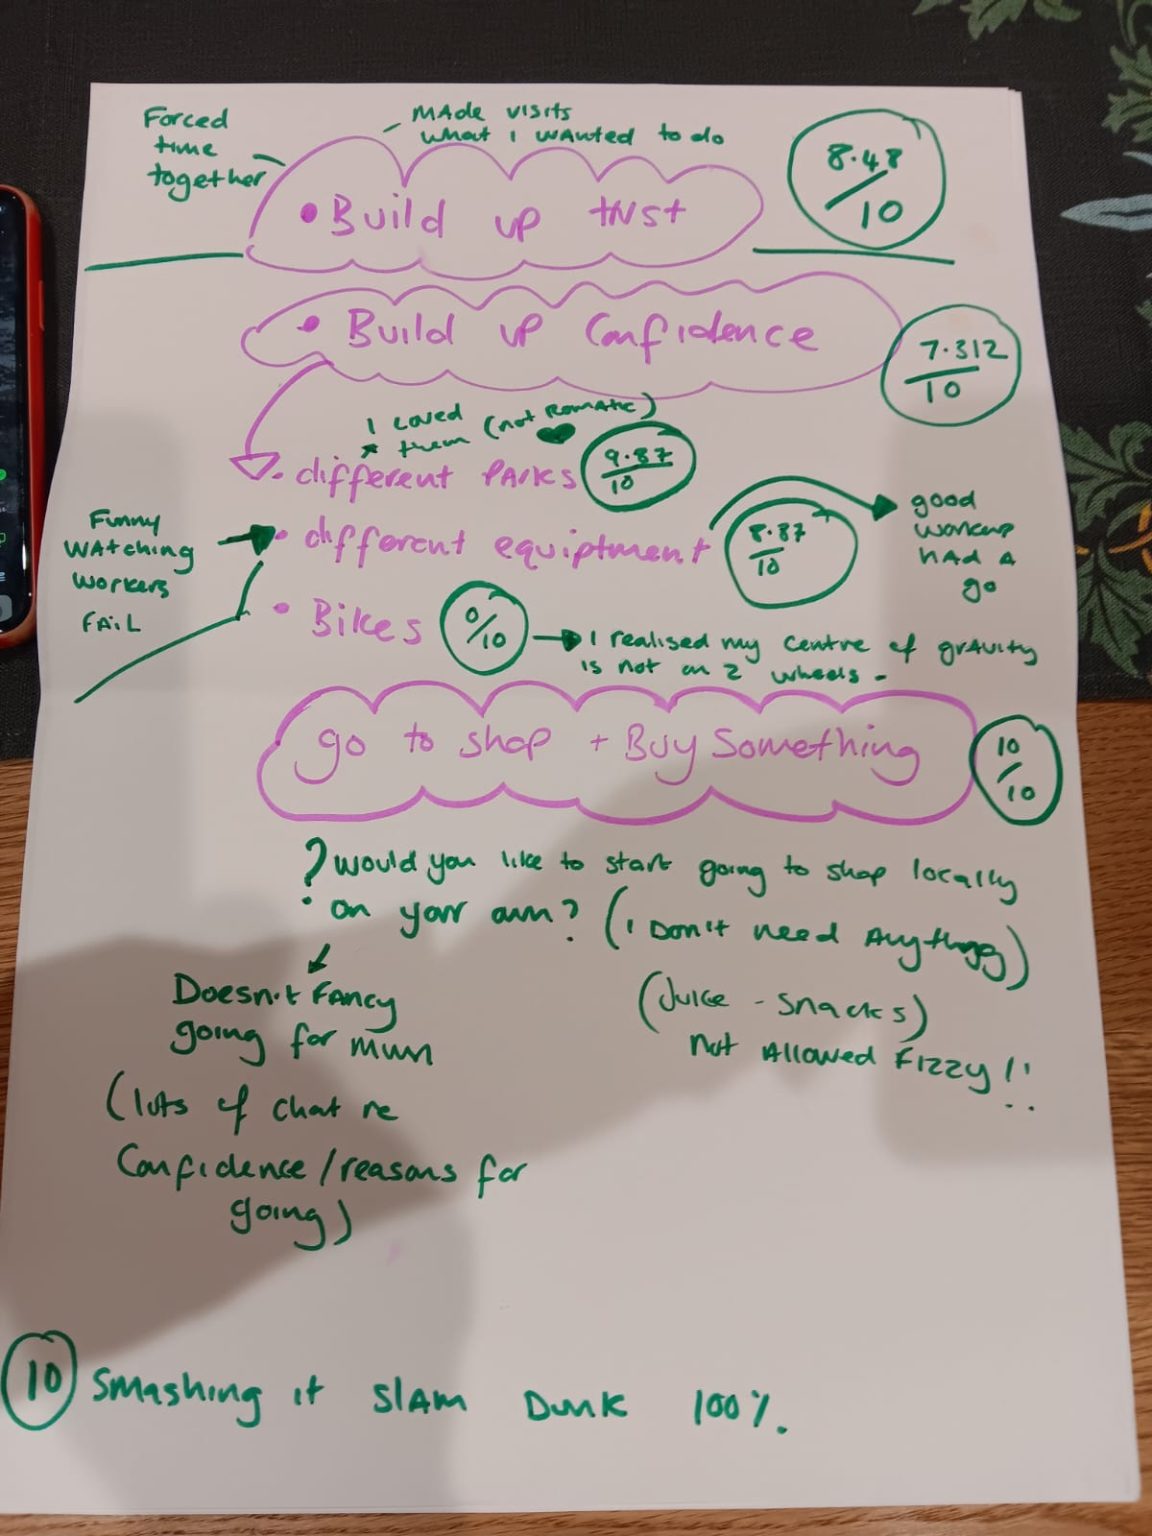 Forced
time
together
MAde visits
what I wanted to do
8.48
/
10
• Build up trust
• Build up Confidence
7.312
10
I loved
* them (not Romatic) ♥
• different PArks
9.87
10
Funny
WAtching
workers
FAiL
• different equiptment
8.87
10
good
workers
HAD A
go
• Bikes
0/10
I realised my centre of grAvity
is not on 2 wheels -
go to shop + Buy Something
10
/
10
? would you like to start going to shop locally
on your own? (I Don't need Anything)
Doesn't FAncy
going for mum
(Juice - Snacks)
not Allowed FIZZY !!
(lots of chat re
Confidence/reasons for
going)
10 Smashing it SlAM Dunk 100%.